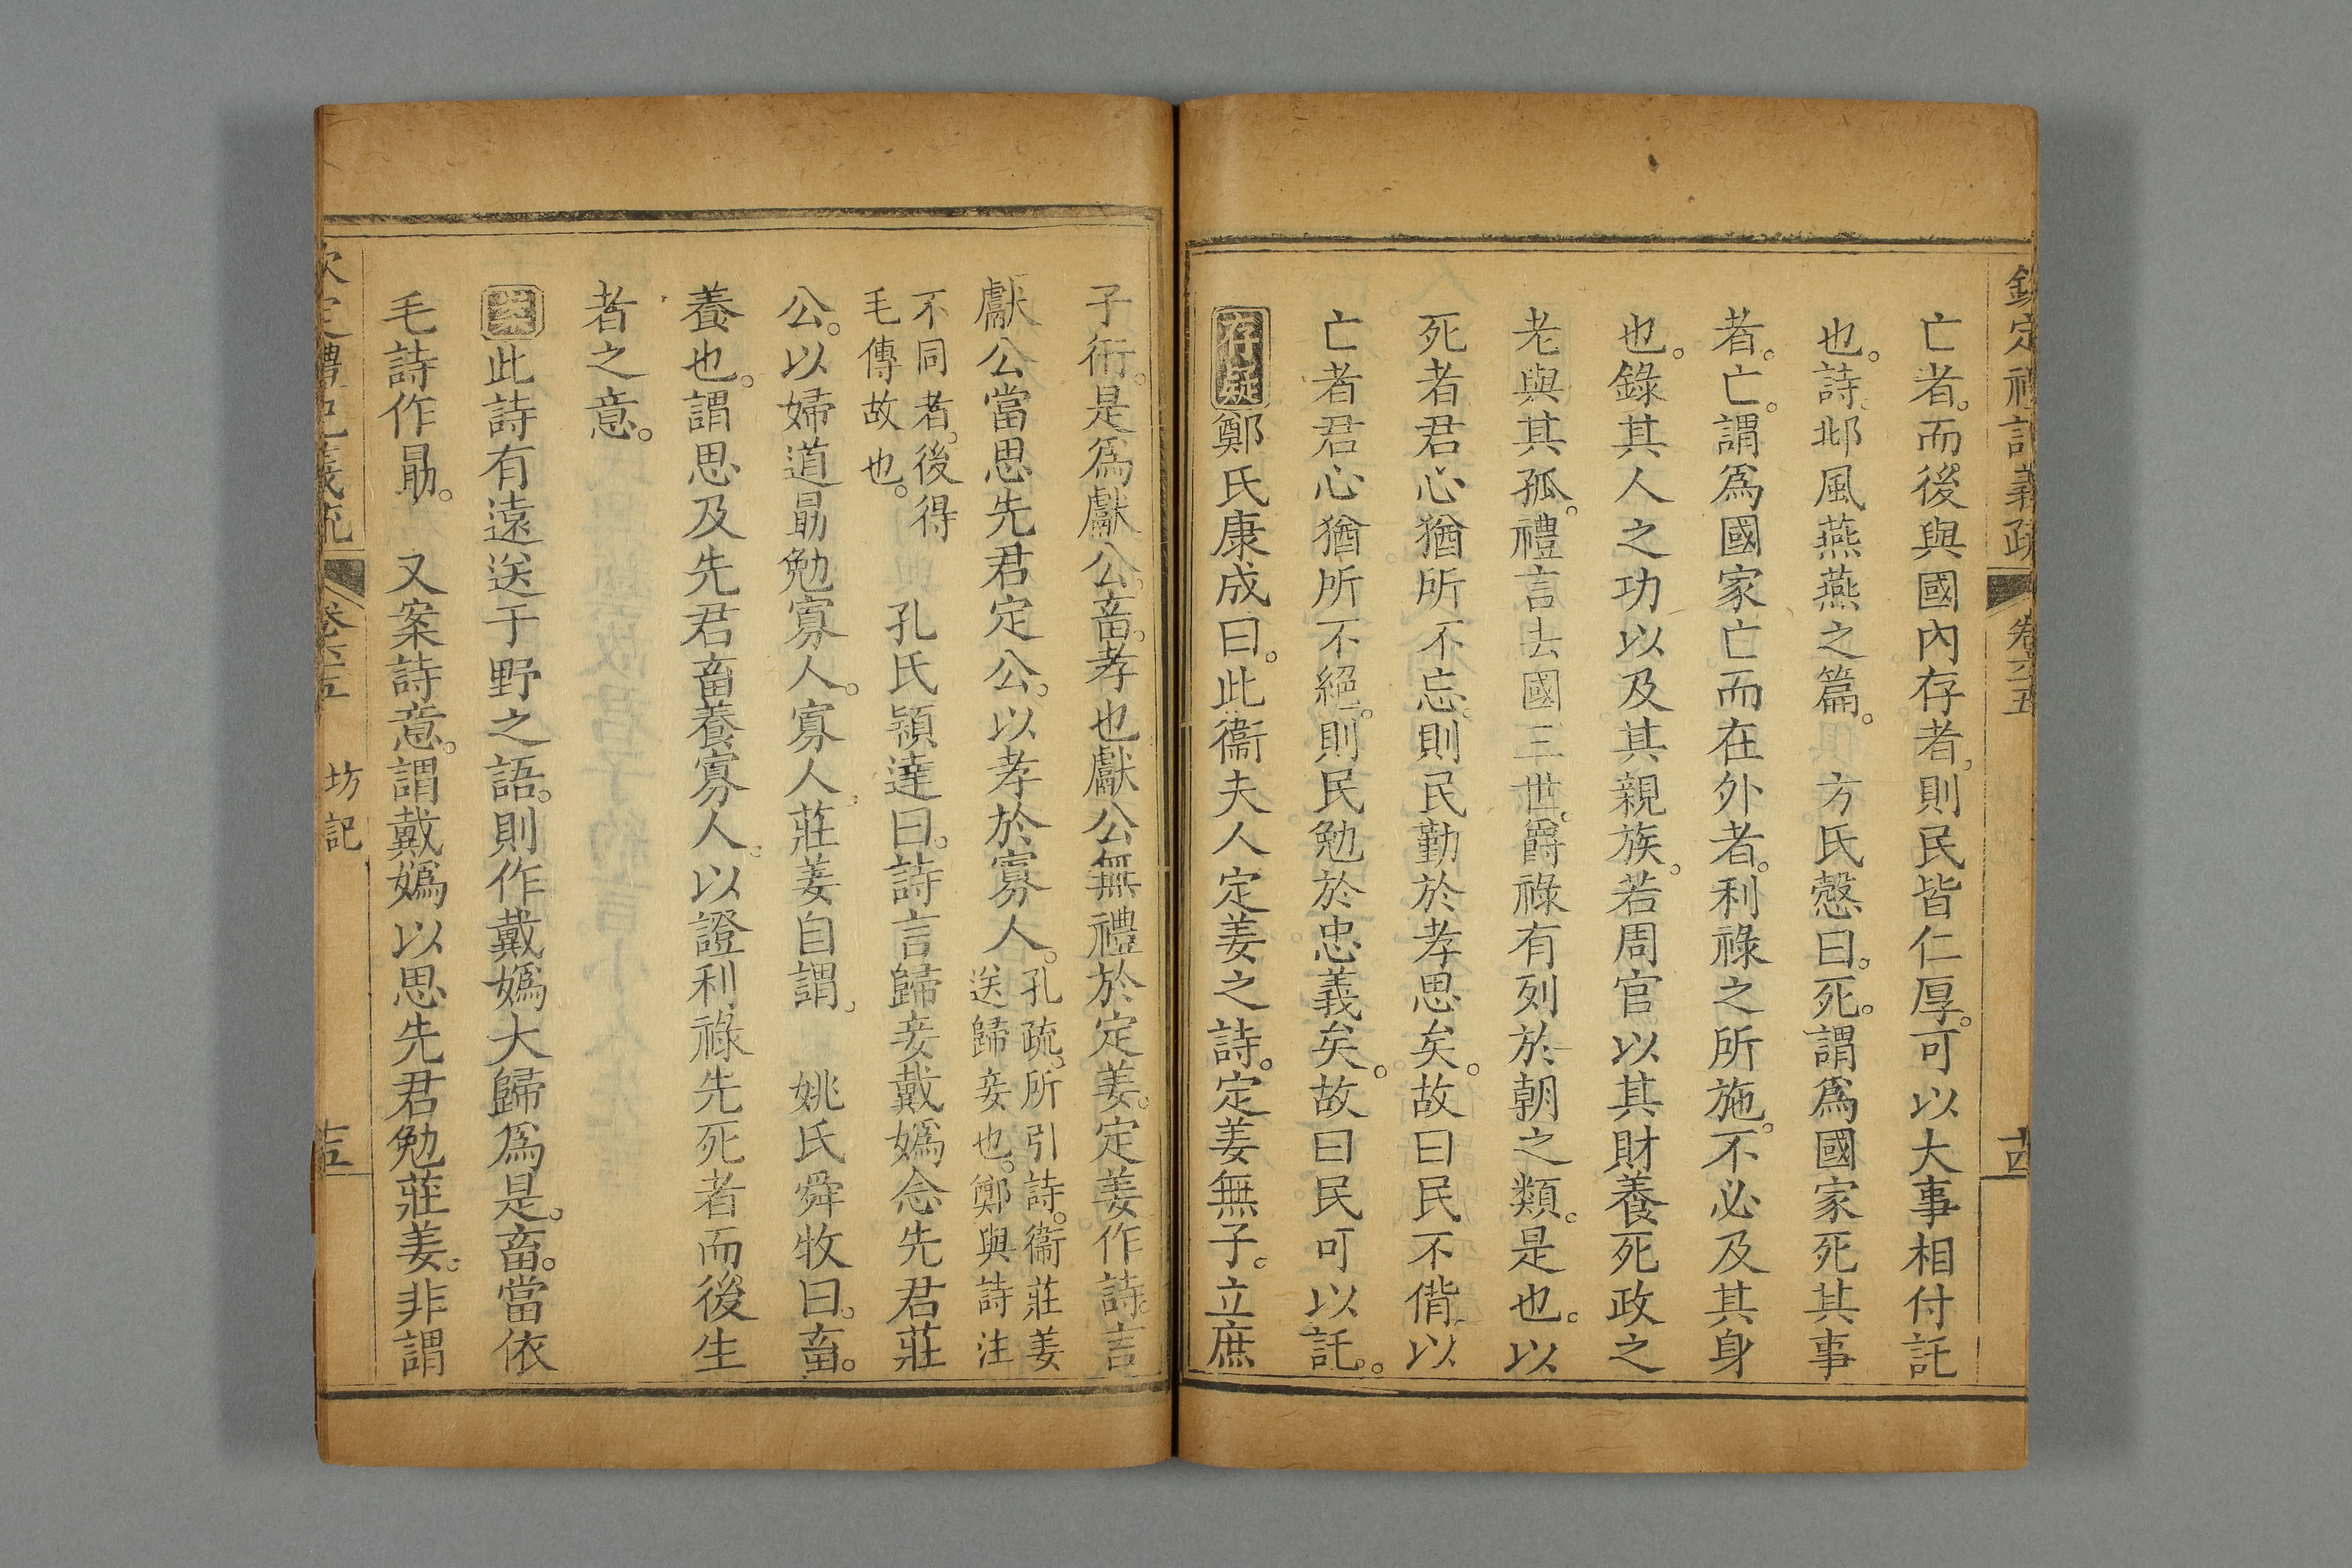 欽定禮記義疏 卷六十五 十四
亡者。而後與國內存者。則民皆仁厚。可以大事相付託
也。詩。邶風燕燕之篇。 方氏慤曰。死。謂爲國家死其事
者。亡。謂爲國家亡而在外者。利祿之所施。不必及其身
也。錄其人之功以及其親族。若周官以其財養死政之
老與其孤。禮言去國三世。爵祿有列於朝之類。是也。以
死者君心猶所不忘。則民勤於孝思矣。故曰民不偝。以
亡者君心猶所不絕。則民勉於忠義矣。故曰民可以託。
存疑鄭氏康成曰。此衞夫人定姜之詩。定姜無子。立庶
子衎。是爲獻公。畜。孝也獻公無禮於定姜。定姜作詩。言
獻公當思先君定公。以孝於寡人。孔疏。所引詩。衞莊姜
送歸妾也。鄭與詩注
不同者。後得
毛傳故也。 孔氏穎達曰。詩言歸妾戴嬀念先君莊
公。以婦道勗勉寡人。寡人。莊姜自謂。 姚氏舜牧曰。畜。
養也。謂思及先君畜養寡人。以證利祿先死者而後生
者之意。
案此詩有遠送于野之語。則作戴嬀大歸爲是。畜。當依
毛詩作勗。 又案詩意。謂戴嬀以思先君勉莊姜。非謂
欽定禮記義疏 卷六十五 坊記 十五